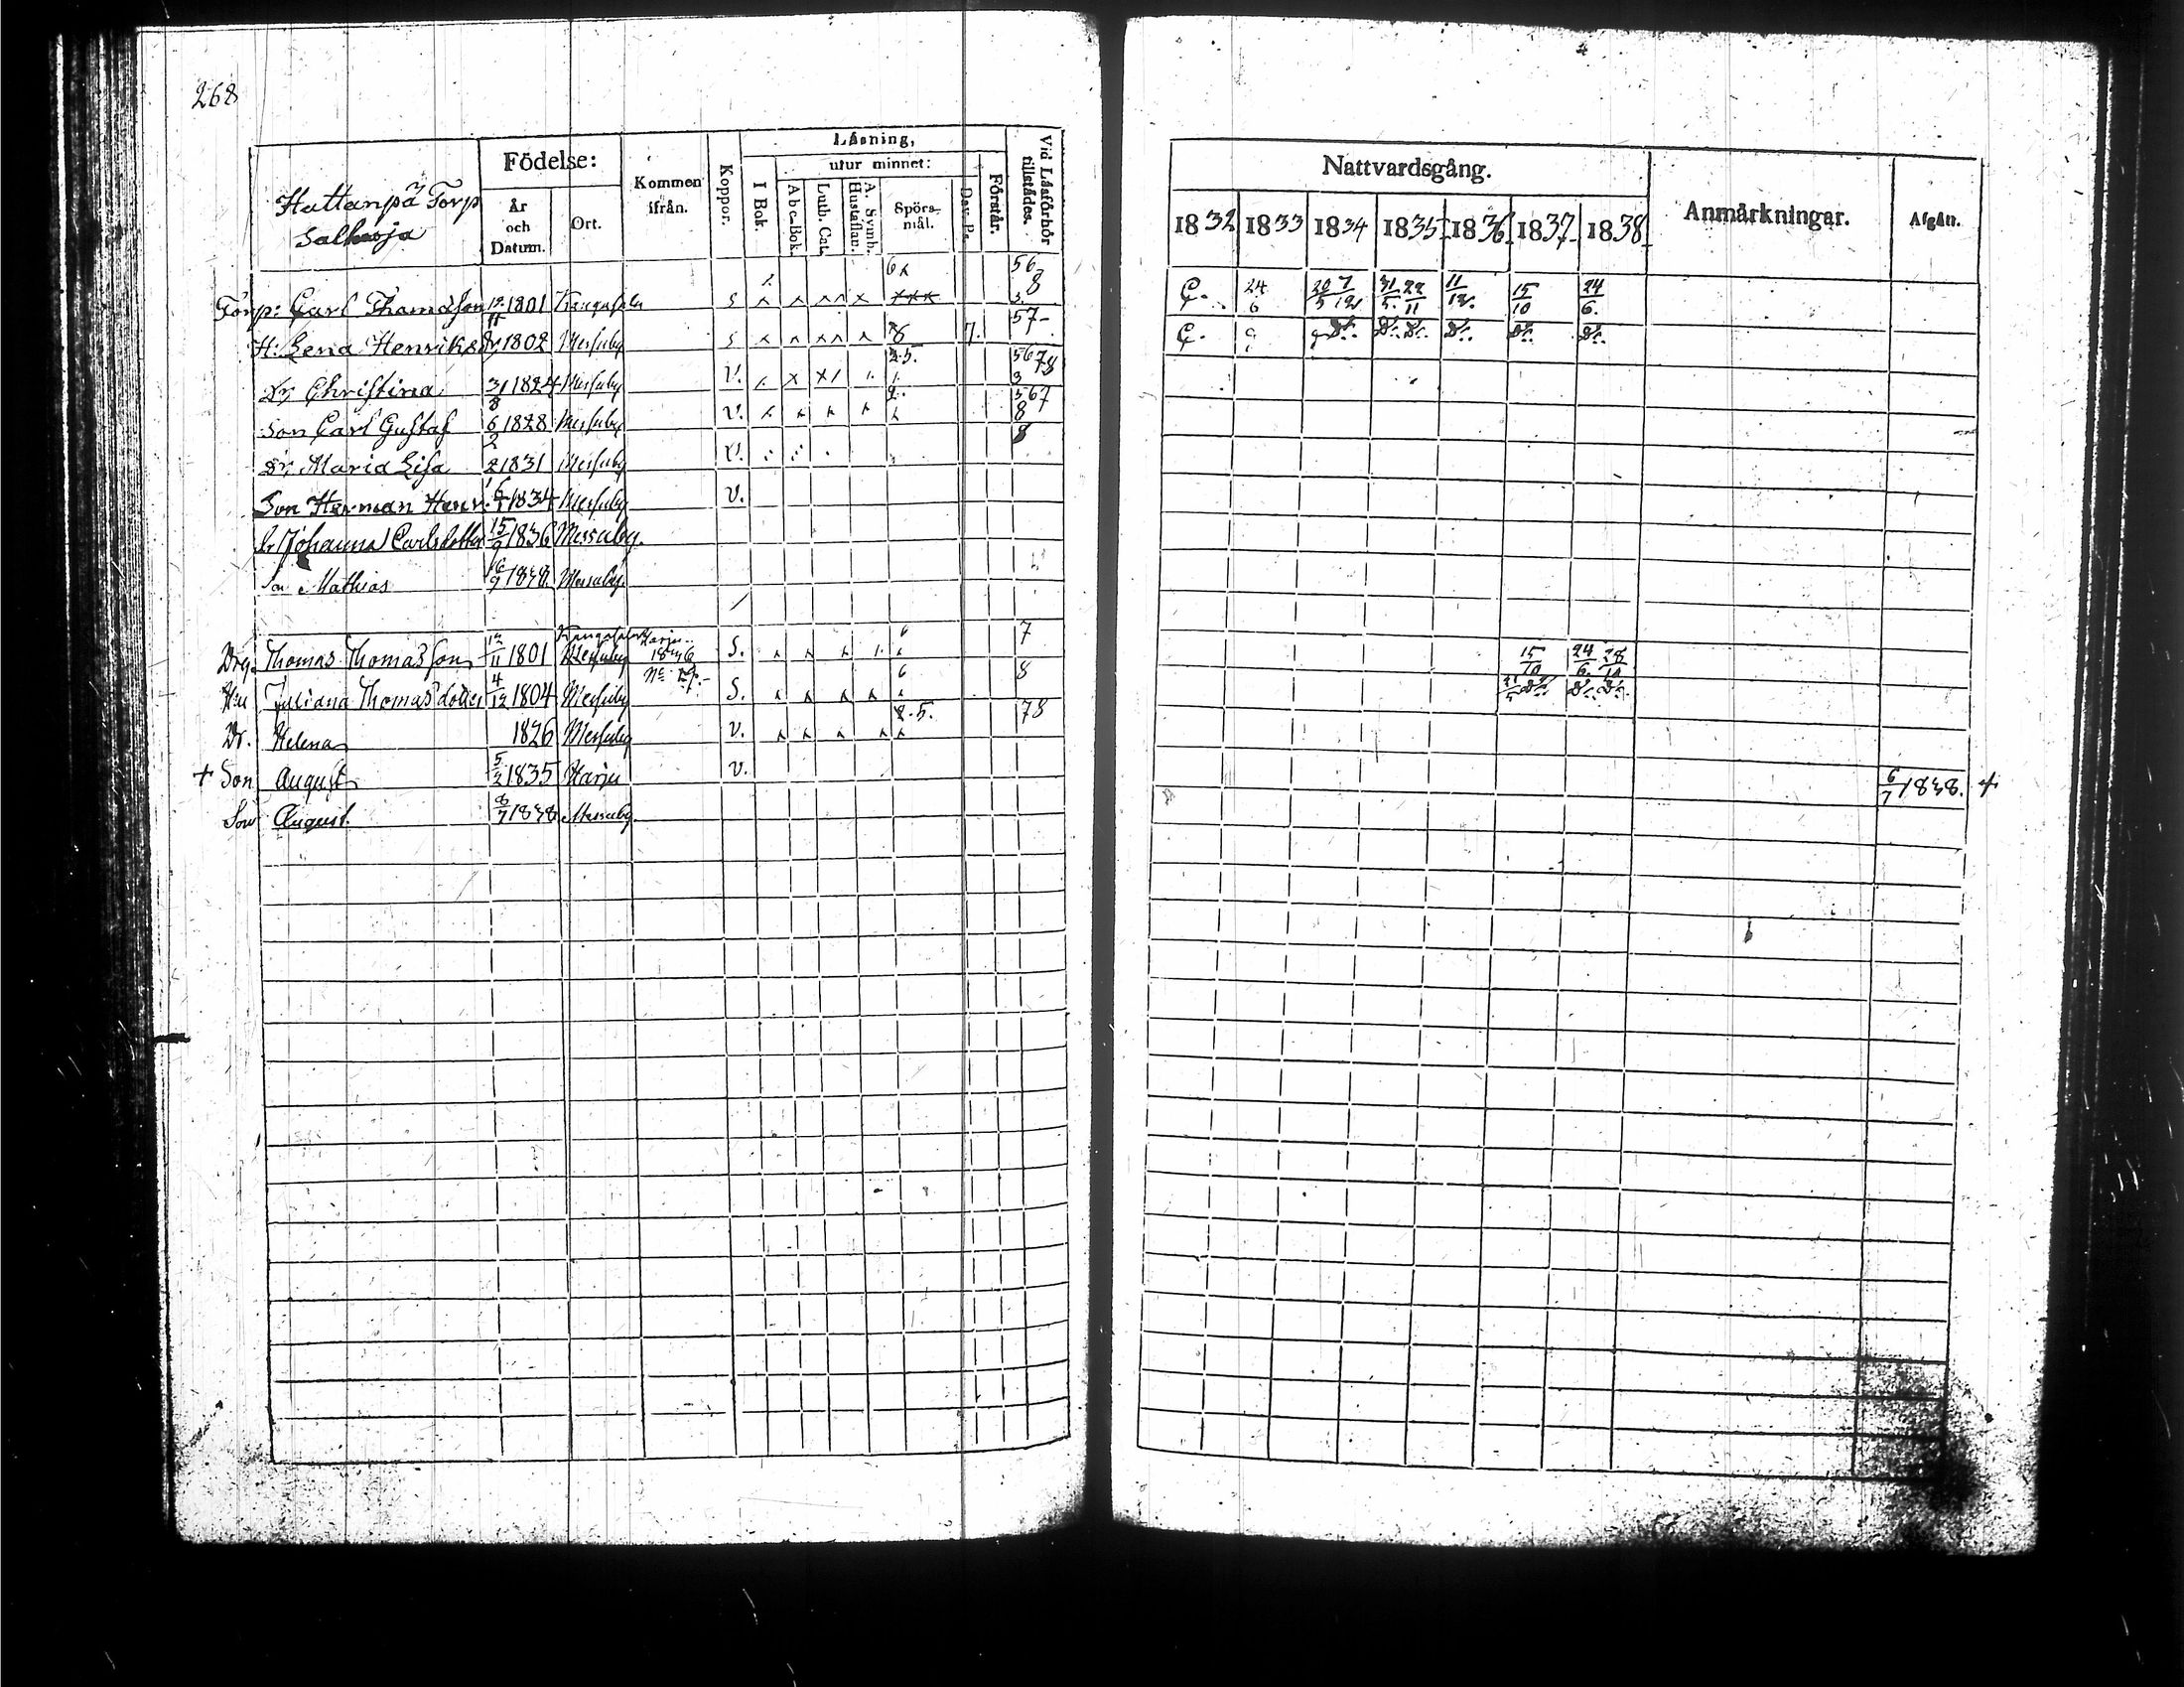 268
Hattanpä Torp
Salhoja
Födelse:
År och Datum.
Ort.
Kommen ifrån.
Koppor.
Läsning,
utur minnet:
I Bok.
Abc-Bok.
Luth. Cat.
A. Symb. Hustaflan.
Spörsmål.
Dav. Ps.
Förstår.
Vid Läsförhör tillstädes.
Nattvardsgång.
1832 1833 1834 1835 1836 1837 1838
Anmärkningar.
Afgått.
Torp: Carl Thomasson 12/11 1801 Kangasala S 568 C. 24/6 20/5 7/12 31/5 22/11 11/12 15/10 24/6
H: Lena Henriksdr 1802 Messuby S 8 7. 57 C. Do Do Do Do Do Do
Dr Christina 31/8 1824 Messuby V. 2.5. 5678
Son Carl Gustaf 6/2 1828 Messuby V. 2. 5678
Dr Maria Lisa 1831 Messuby V. 8
Son Herman Henr. 1834 Messuby V.
Dr Johanna Carlsdotter 15/9 1836 Messuby.
Son Mathias 1838. Messuby.
Drg. Thomas Thomasson 12/11 1801 Kangasala Messuby Harju 1836 S. 6 7 15/10 24/6 28/10
Hu Juliana Thomasdotter 4/12 1804 Messuby S. 6 8 Do Do Do
Dr. Helena 1826 Messuby V. 2.5. 78
+ Son August 5/2 1835 Harju V. 6/7 1838. +
Son August. 8/7 1838 Messuby.